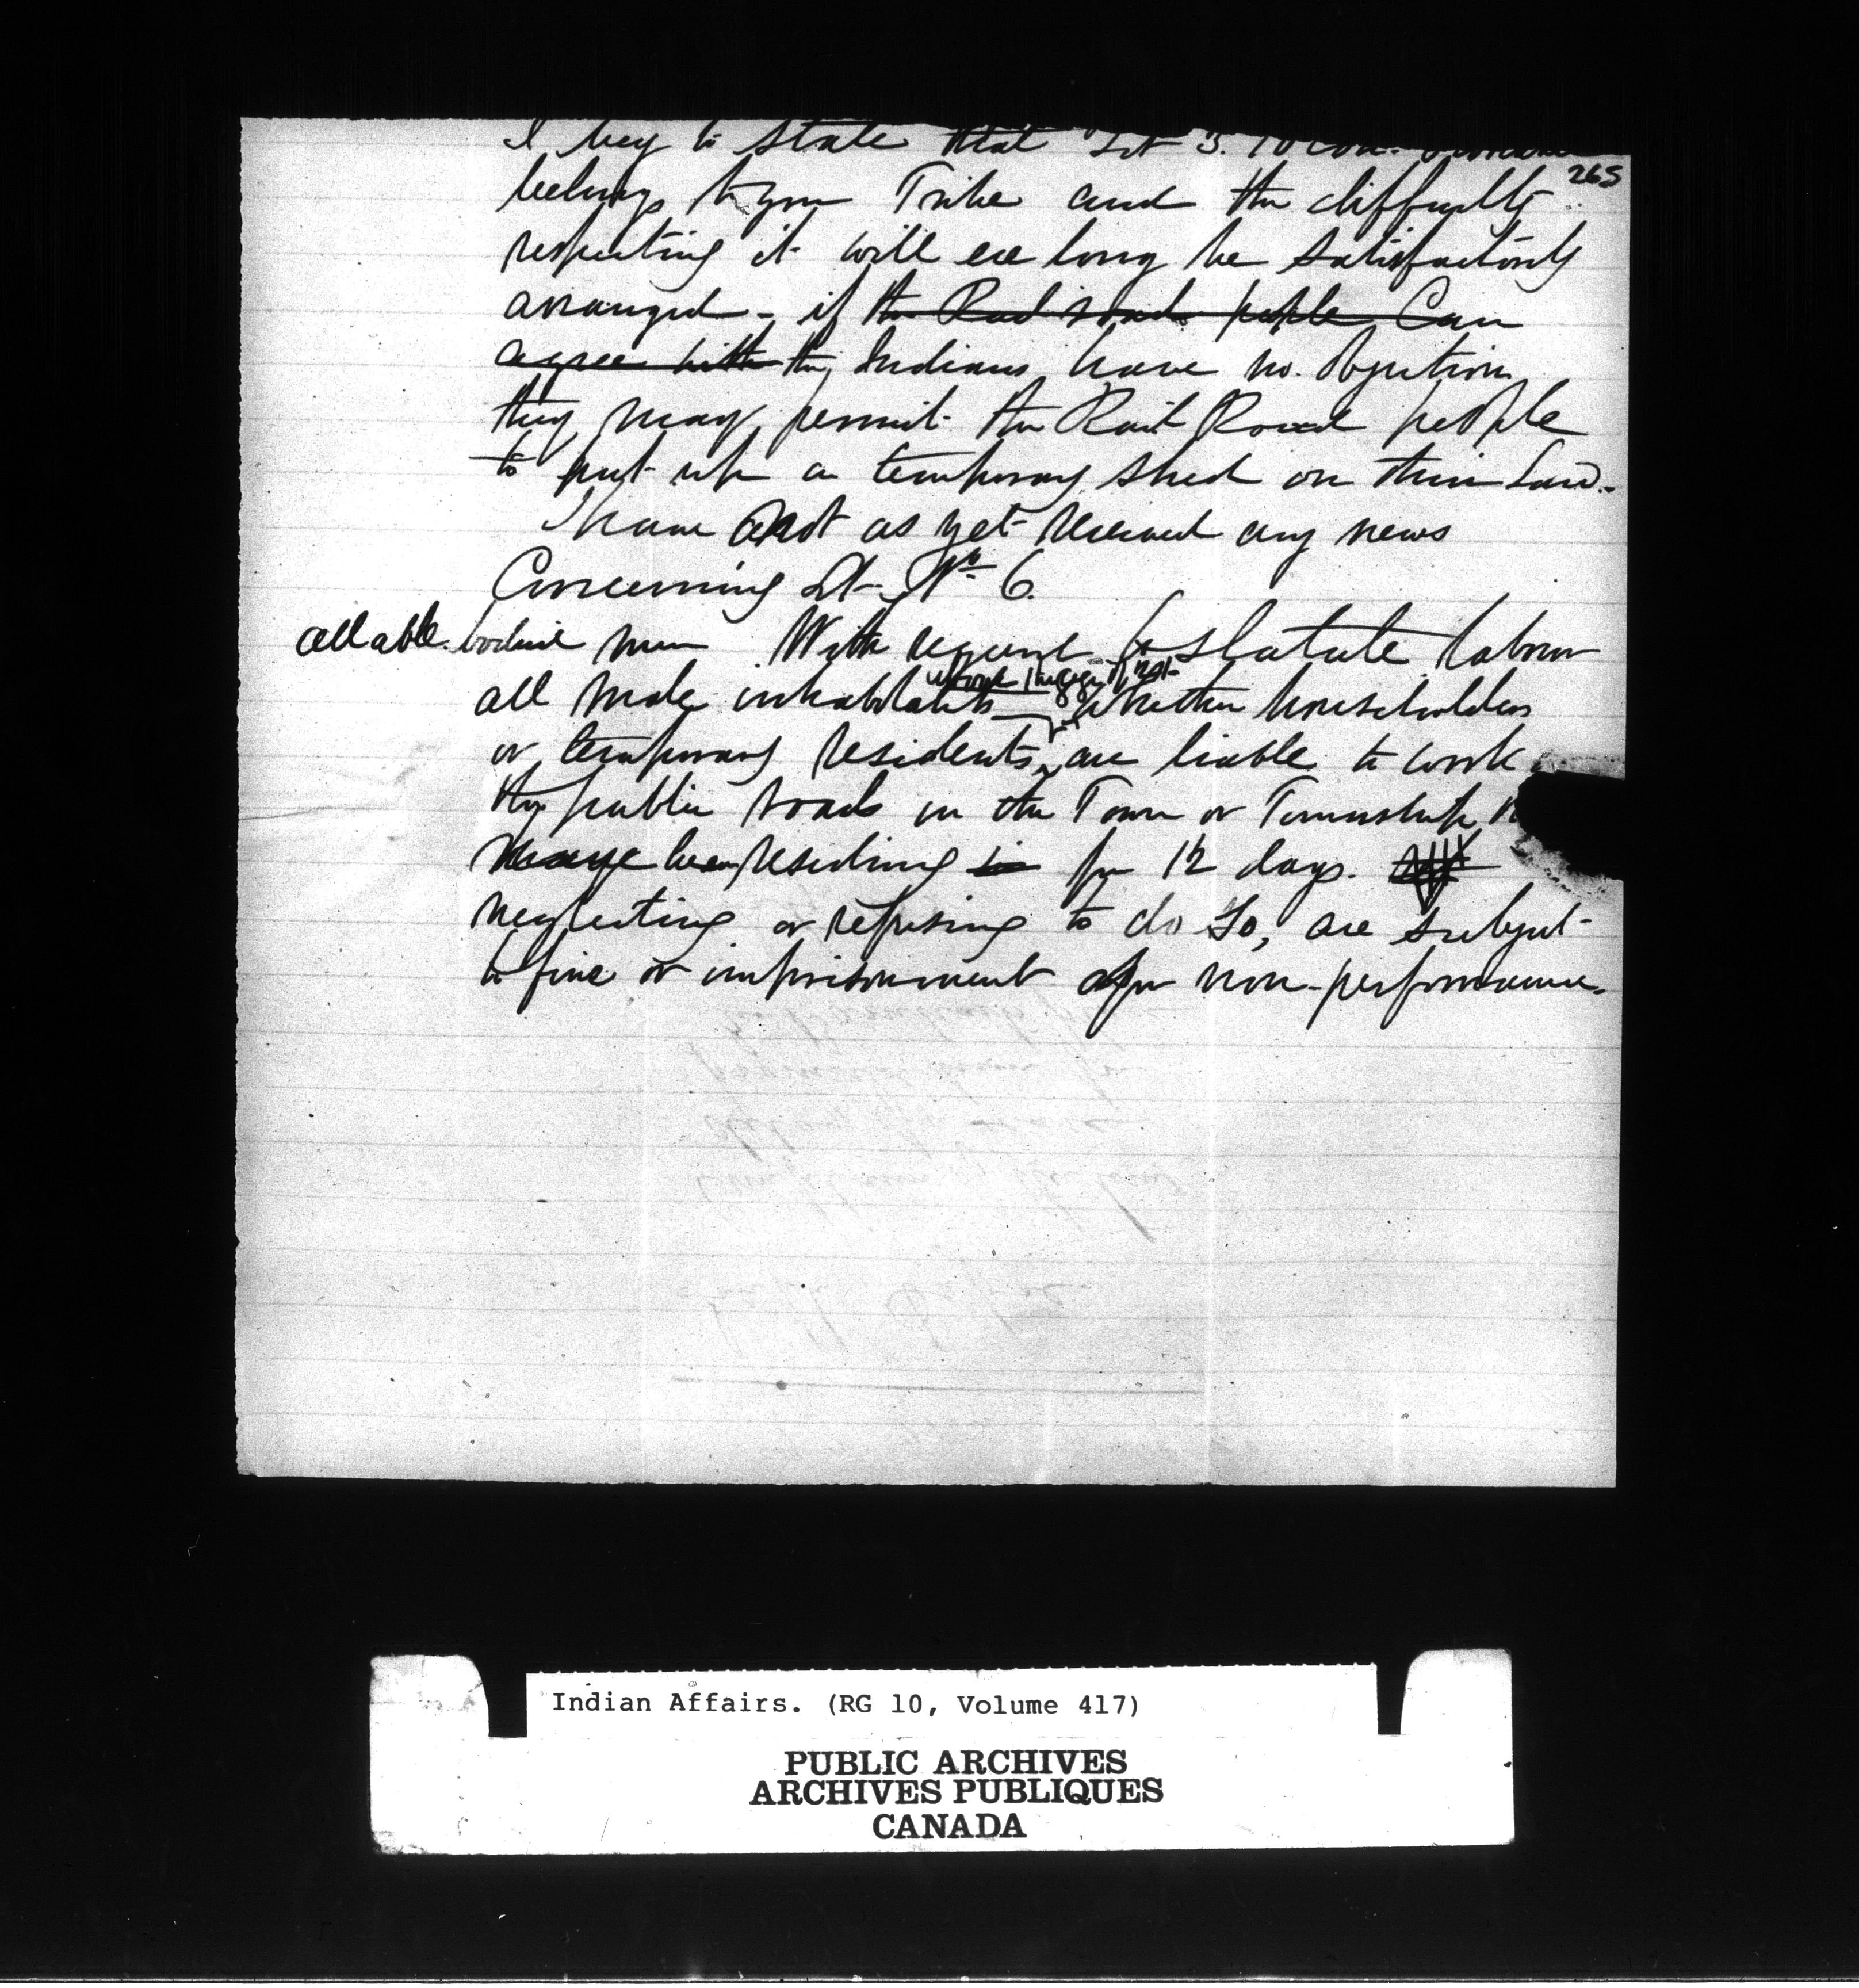 I beg to state that Lot 3. 10 Con.
265
belongs to your Tribe and the difficulty
respecting it will ere long be satisfactorily
arranged - if the Rail road people Can
agree with the Indians have no objection
they may permit the Rail Road people
to put up a temporary shed on their Land.
I have not as yet received any news
Concerning Lot No 6.
all able bodied men With regard to Statute labour
all male inhabitants whether householders
or temporary residents, are liable to work
the public roads in the Town or Township
have been residing in for 12 days.
neglecting or refusing to do so, are subject
to fine or imprisonment for non-performance.
Indian Affairs. (RG 10, Volume 417)
PUBLIC ARCHIVES
ARCHIVES PUBLIQUES
CANADA